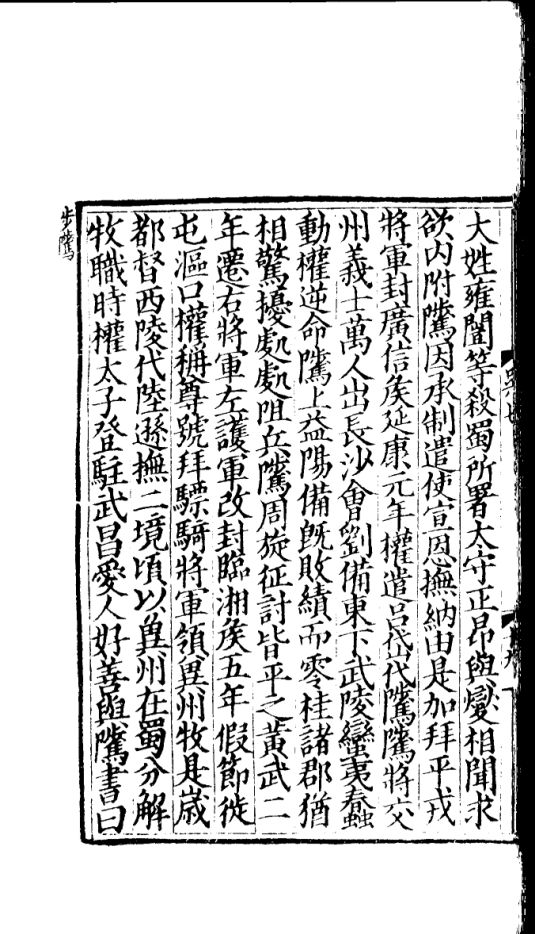 大姓雍闓等殺蜀所署太守正昂與燮相聞求
欲内附隲因承制遣使宣恩撫納由是加拜平戎
將軍封廣信矦延康元年權遣吕岱代隲隲將交
州義士萬人出長沙會劉備東下武陵蠻夷蠢
動權遂命隲上益陽備旣敗績而零桂諸郡猶
相驚擾處處阻兵隲周旋征討皆平之黃武二
年遷右將軍左護軍改封臨湘矦五年假節徙
屯漚口權稱尊號拜驃騎將軍領兾州牧是歲
都督西陵代陸遜撫二境頃以兾州在蜀分解
牧職時權太子登駐武昌愛人好善與隲書曰
步隲